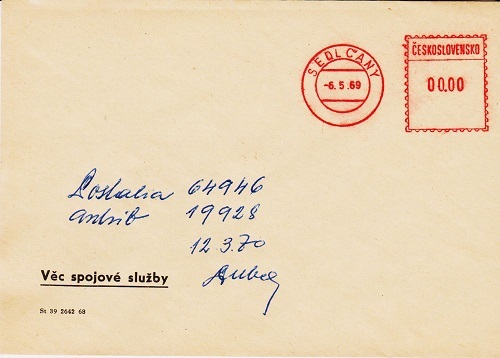 SEDLČANY
-6.5.69
ČESKOSLOVENSKO
00.00
64946
19928
12.3.70
Věc spojové služby
St 39 2642 68